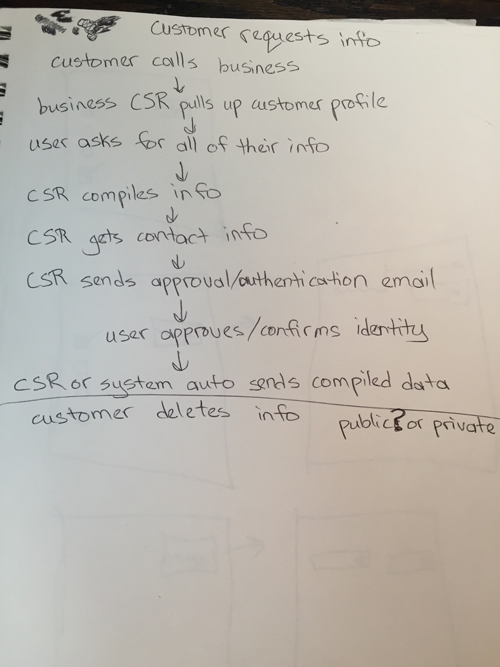 customer requests info
customer calls business
business CSR pulls up customer profile
user asks for all of their info
CSR compiles info
CSR gets contact info
CSR sends approval/authentication email
user approves/confirms identity
CSR or system auto sends compiled data
customer deletes info
public? or private